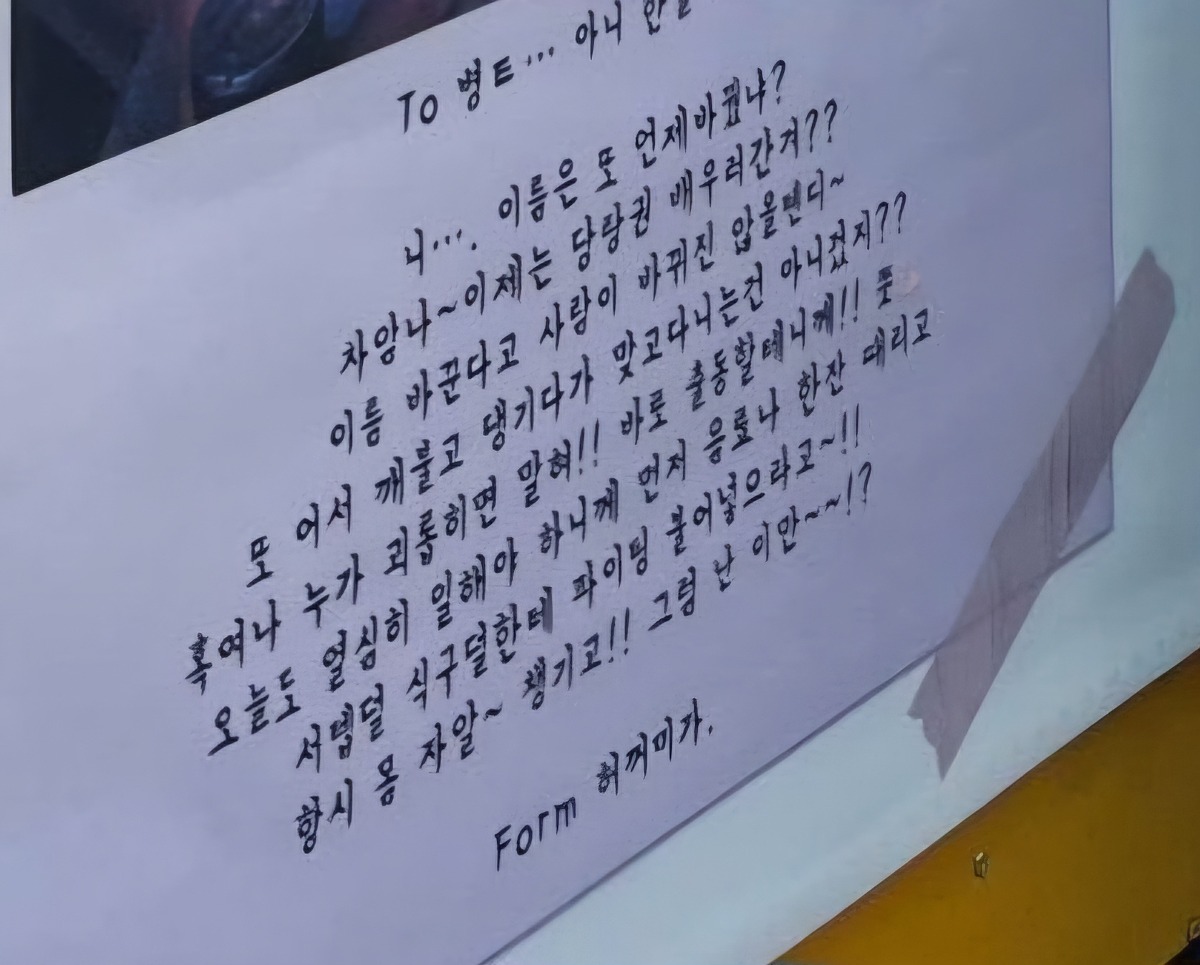 TO 병트... 아니
니.... 이름은 또 언제바꿨냐?
차암나~이제는 당랑권 배우러간겨??
이름 바꾼다고 사람이 바뀌진 않을텐디~
또 어서 깨물고 댕기다가 맞고다니는건 아니겄지??
혹여나 누가 괴롭히면 말혀!! 바로 출동할테니께!! 풋
오늘도 열심히 일해야 하니께 먼저 음료나 한잔 때리고
서뎁덜 식구덜한테 파이팅 불어넣으라고~!!
항시 몸 자알~ 챙기고!! 그럼 난 이만~~!?
Form 허꺼미가.